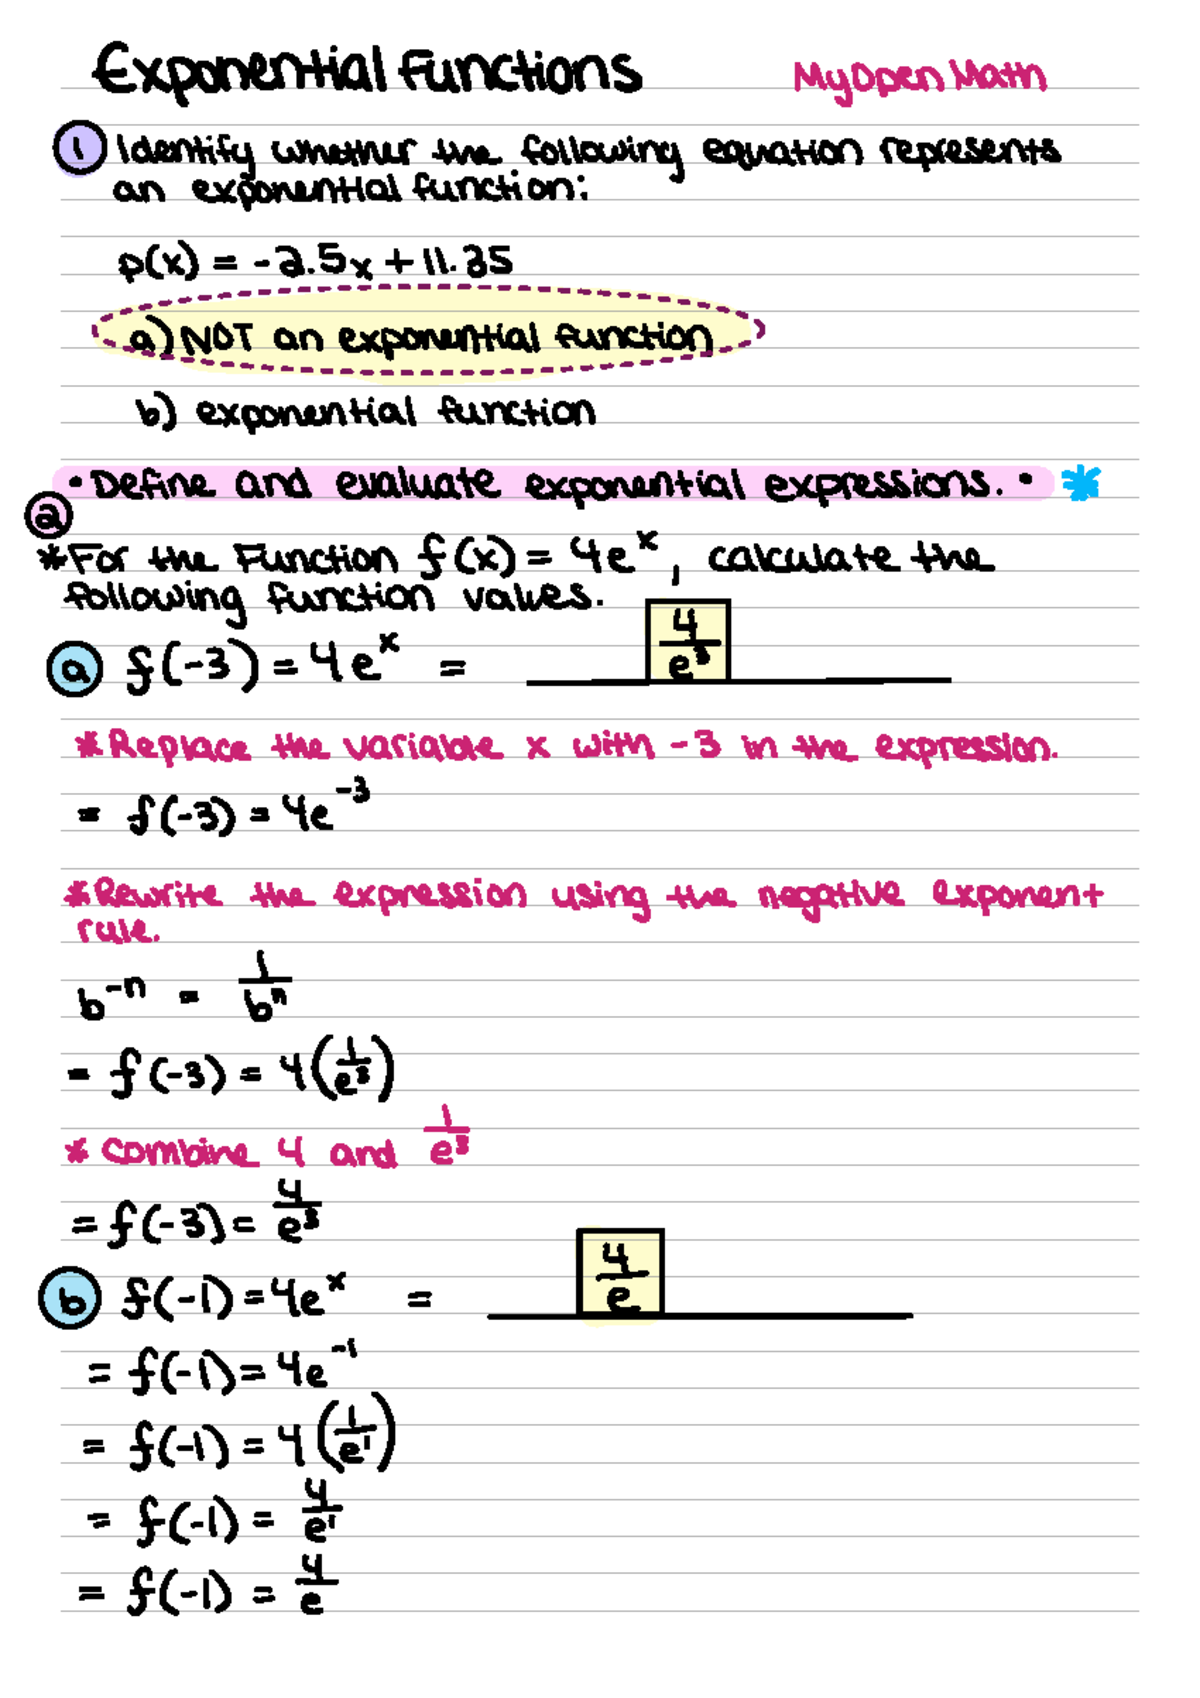 Exponential Functions MyOpenMath
1 Identify whether the following equation represents
an exponential function:
p(x) = -2.5x + 11.25
a) NOT an exponential function
b) exponential function
• Define and evaluate exponential expressions. • *
2
*For the Function f(x) = 4e^x, calculate the
following function values.
a f(-3) = 4e^x = 4/e^3
*Replace the variable x with -3 in the expression.
= f(-3) = 4e^-3
*Rewrite the expression using the negative exponent
rule.
b^-n = 1/b^n
= f(-3) = 4(1/e^3)
* Combine 4 and 1/e^3
= f(-3) = 4/e^3
b f(-1) = 4e^x = 4/e
= f(-1) = 4e^-1
= f(-1) = 4(1/e^1)
= f(-1) = 4/e^1
= f(-1) = 4/e